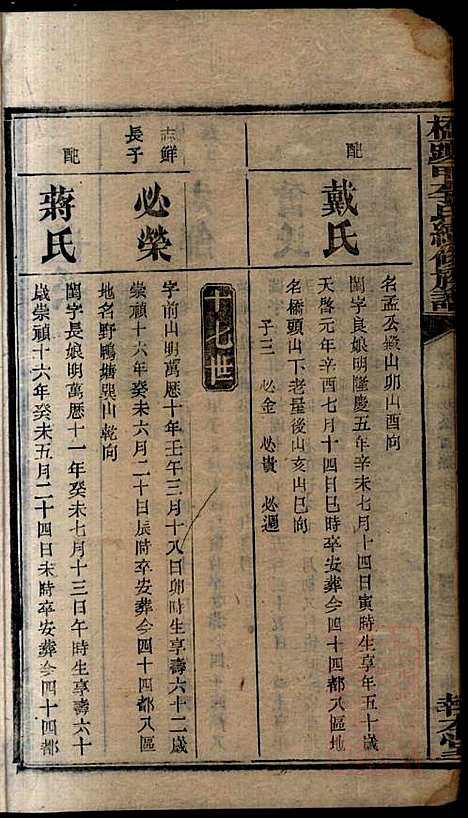 橋頭甲李氏續修族譜
名孟公嶺山卯山酉向
配
戴氏
閨字良娘明隆慶五年辛未七月十四日寅時生享年五十歲
天啓元年辛酉七月十四日巳時卒安葬今四十四都八區地
名橋頭山下老量後山亥山巳向
子三 必金 必貴 必週
十七世
志鮮
長子
必榮
字前山明萬曆十年壬午三月十八日卯時生享壽六十二歲
崇禎十六年癸未六月二十日辰時卒安葬今四十四都八區
地名野鴨塘巽山乾向
配
蔣氏
閨字長娘明萬曆十一年癸未七月十三日午時生享壽六十
歲崇禎十六年癸未五月二十四日未時卒安葬今四十四都